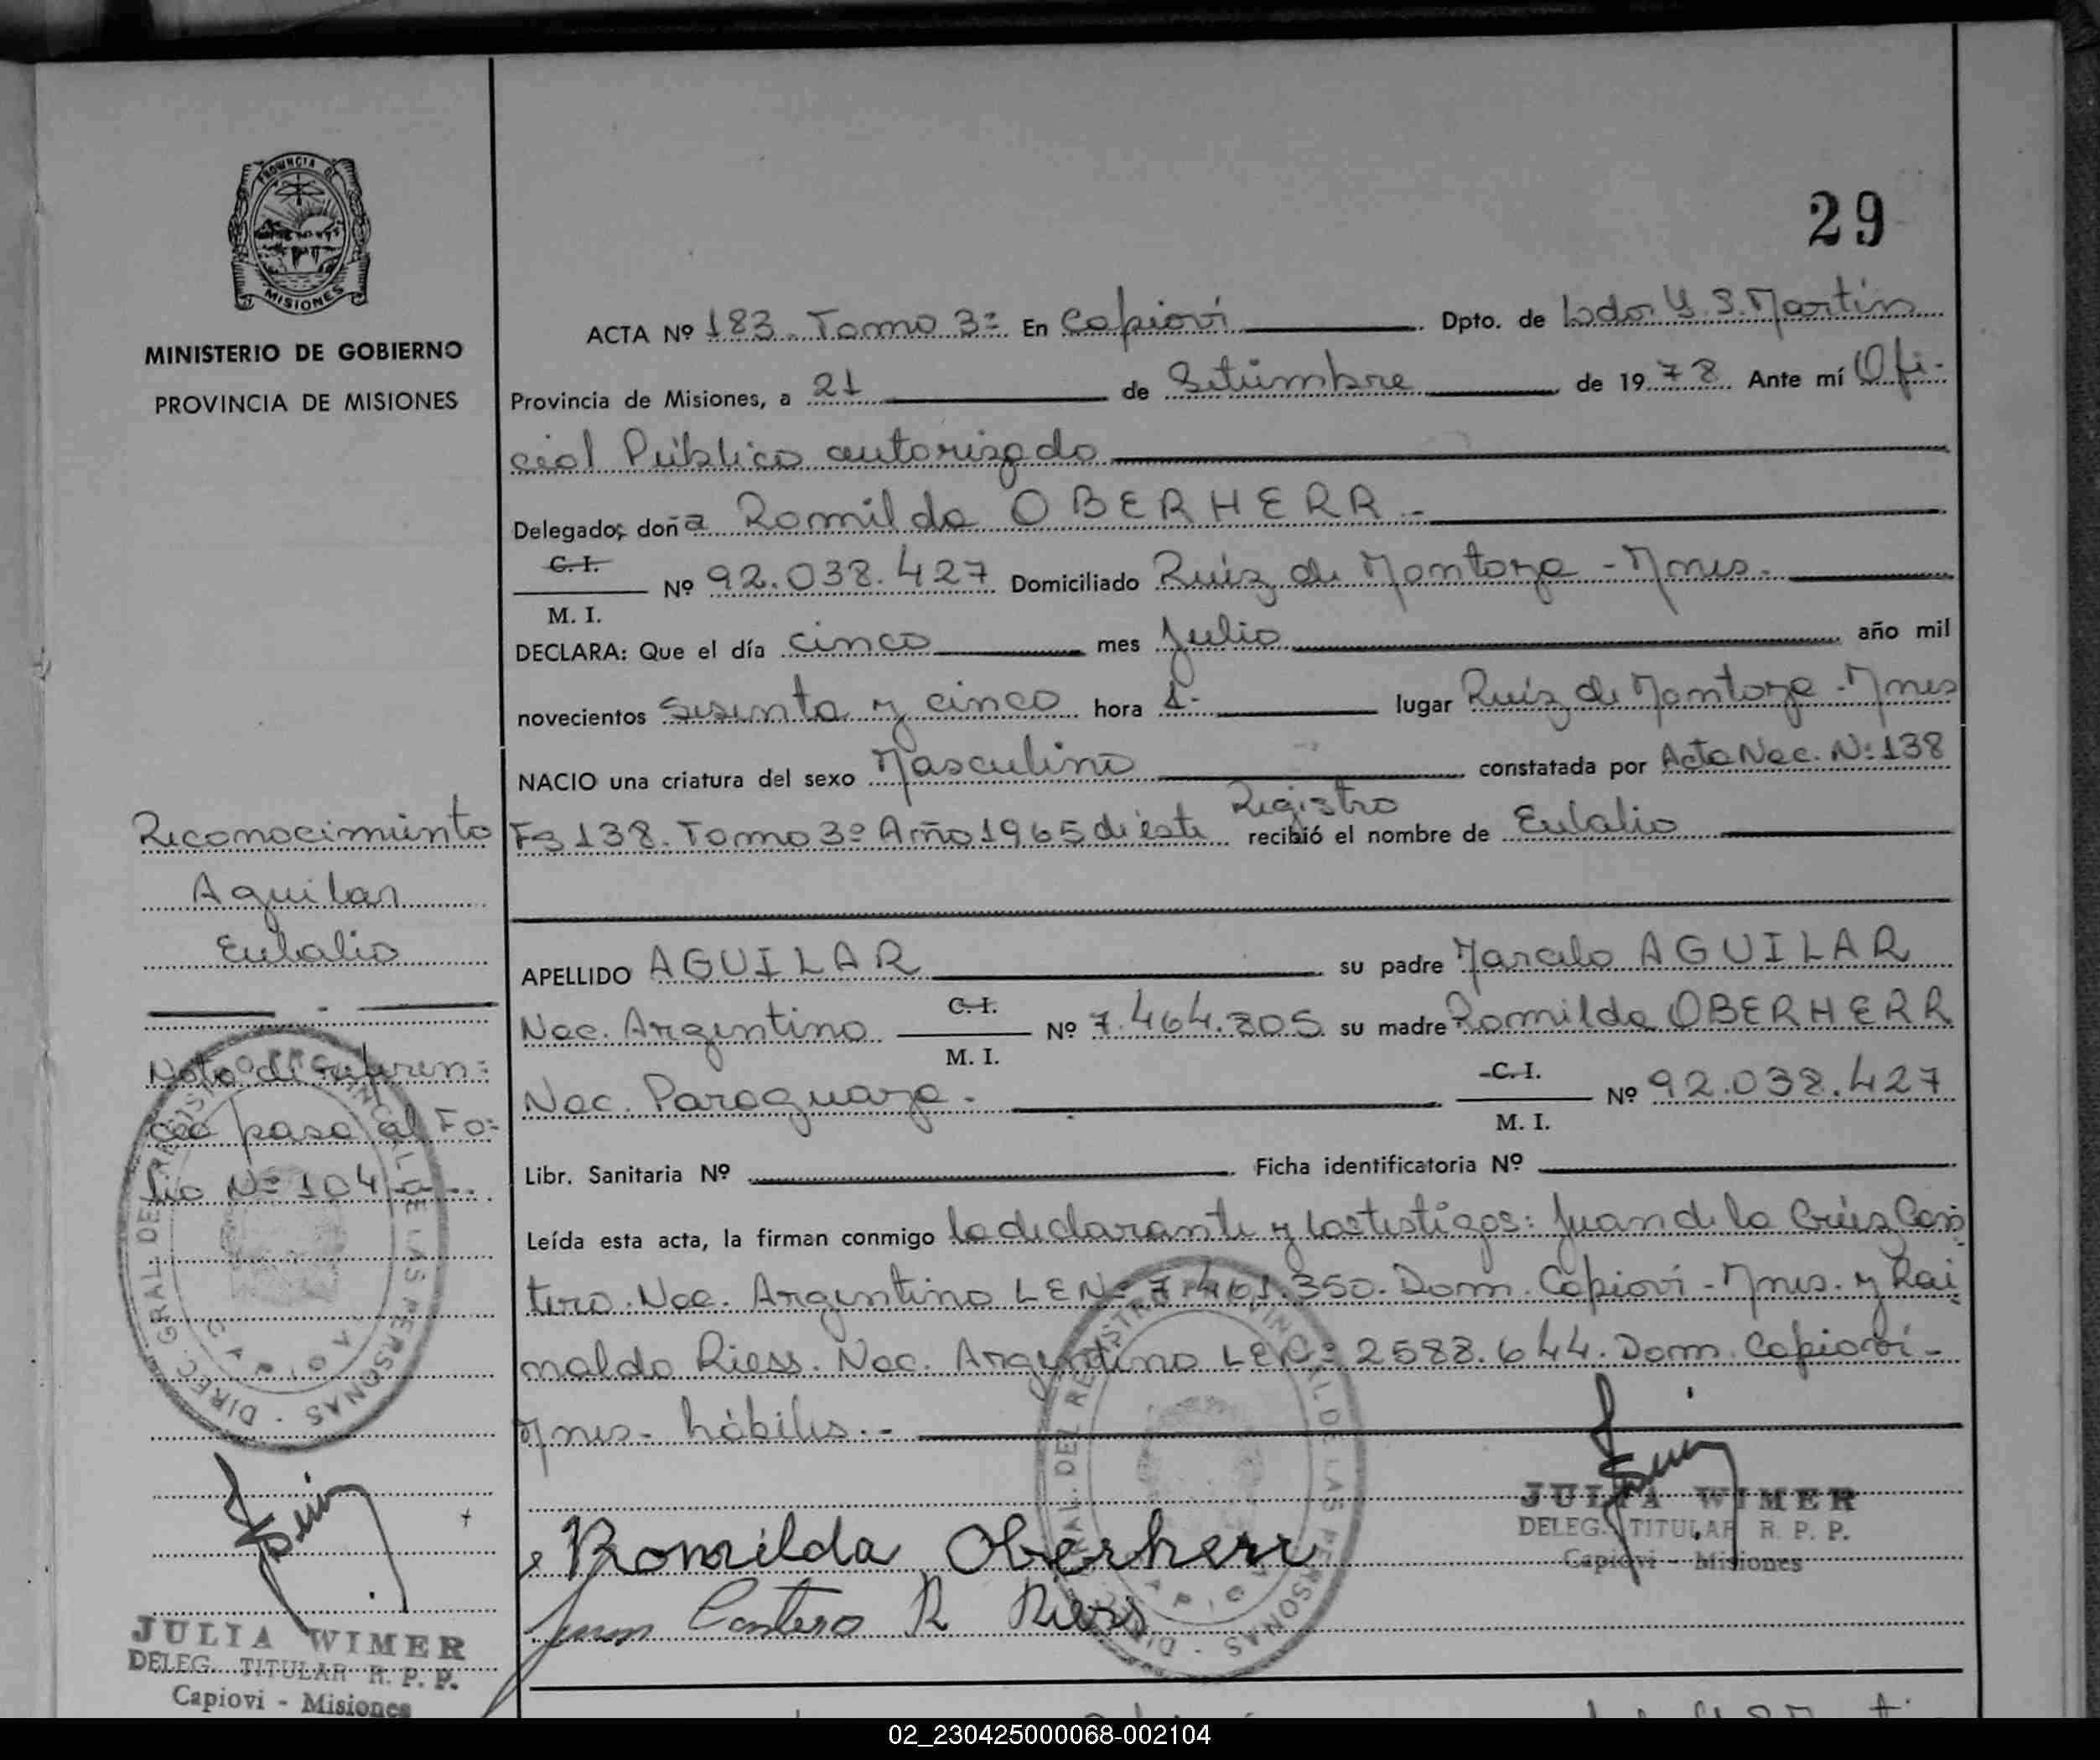 PROVINCIA DE
MISIONES
MINISTERIO DE GOBIERNO
PROVINCIA DE MISIONES
29
ACTA Nº 183. Tomo 3º En Capioví Dpto. de Ldor G. S. Martín
Provincia de Misiones, a 21 de Setiembre de 1978 Ante mí Ofi-
cial Público autorizado
Delegado, doña Romilda OBERHERR.-
C. I.
Nº 92.038.427 Domiciliado Ruíz de Montoya - Mnes.
M. I.
DECLARA: Que el día cinco mes Julio año mil
novecientos sesenta y cinco hora 1- lugar Ruíz de Montoya - Mnes
NACIO una criatura del sexo Masculino constatada por Acta Nac. Nº 138
Registro
Fs 138. Tomo 3º Año 1965 de éste recibió el nombre de Eulalio
APELLIDO AGUILAR su padre Marcelo AGUILAR
C. I.
Nac. Argentino Nº 7.464.805 su madre Romilda OBERHERR
M. I.
C. I.
Nac. Paraguaya. Nº 92.038.427
M. I.
Libr. Sanitaria Nº Ficha identificatoria Nº
Leída esta acta, la firman conmigo la declarante y los testigos: Juan de la Crúz Can
tero. Nac. Argentino LE Nº 7.461.350. Dom. Capioví - Mnes. y Rai
naldo Riess. Nac. Argentino LE Nº 2588.644. Dom. Capioví -
Mnes- hábiles.-
Romilda Oberherr
Juan Cantero R Riess
JULIA WIMER
DELEG. TITULAR R. P. P.
Capiovi - Misiones
Reconocimiento
Aguilar
Eulalio
Nota de referen=
cia pasa al Fo=
lio Nº 104
DIREC. GRAL. DEL REGISTRO PROVINCIAL DE LAS PERSONAS
CAPIOVI
JULIA WIMER
DELEG. TITULAR R. P. P.
Capiovi - Misiones
02_230425000068-002104